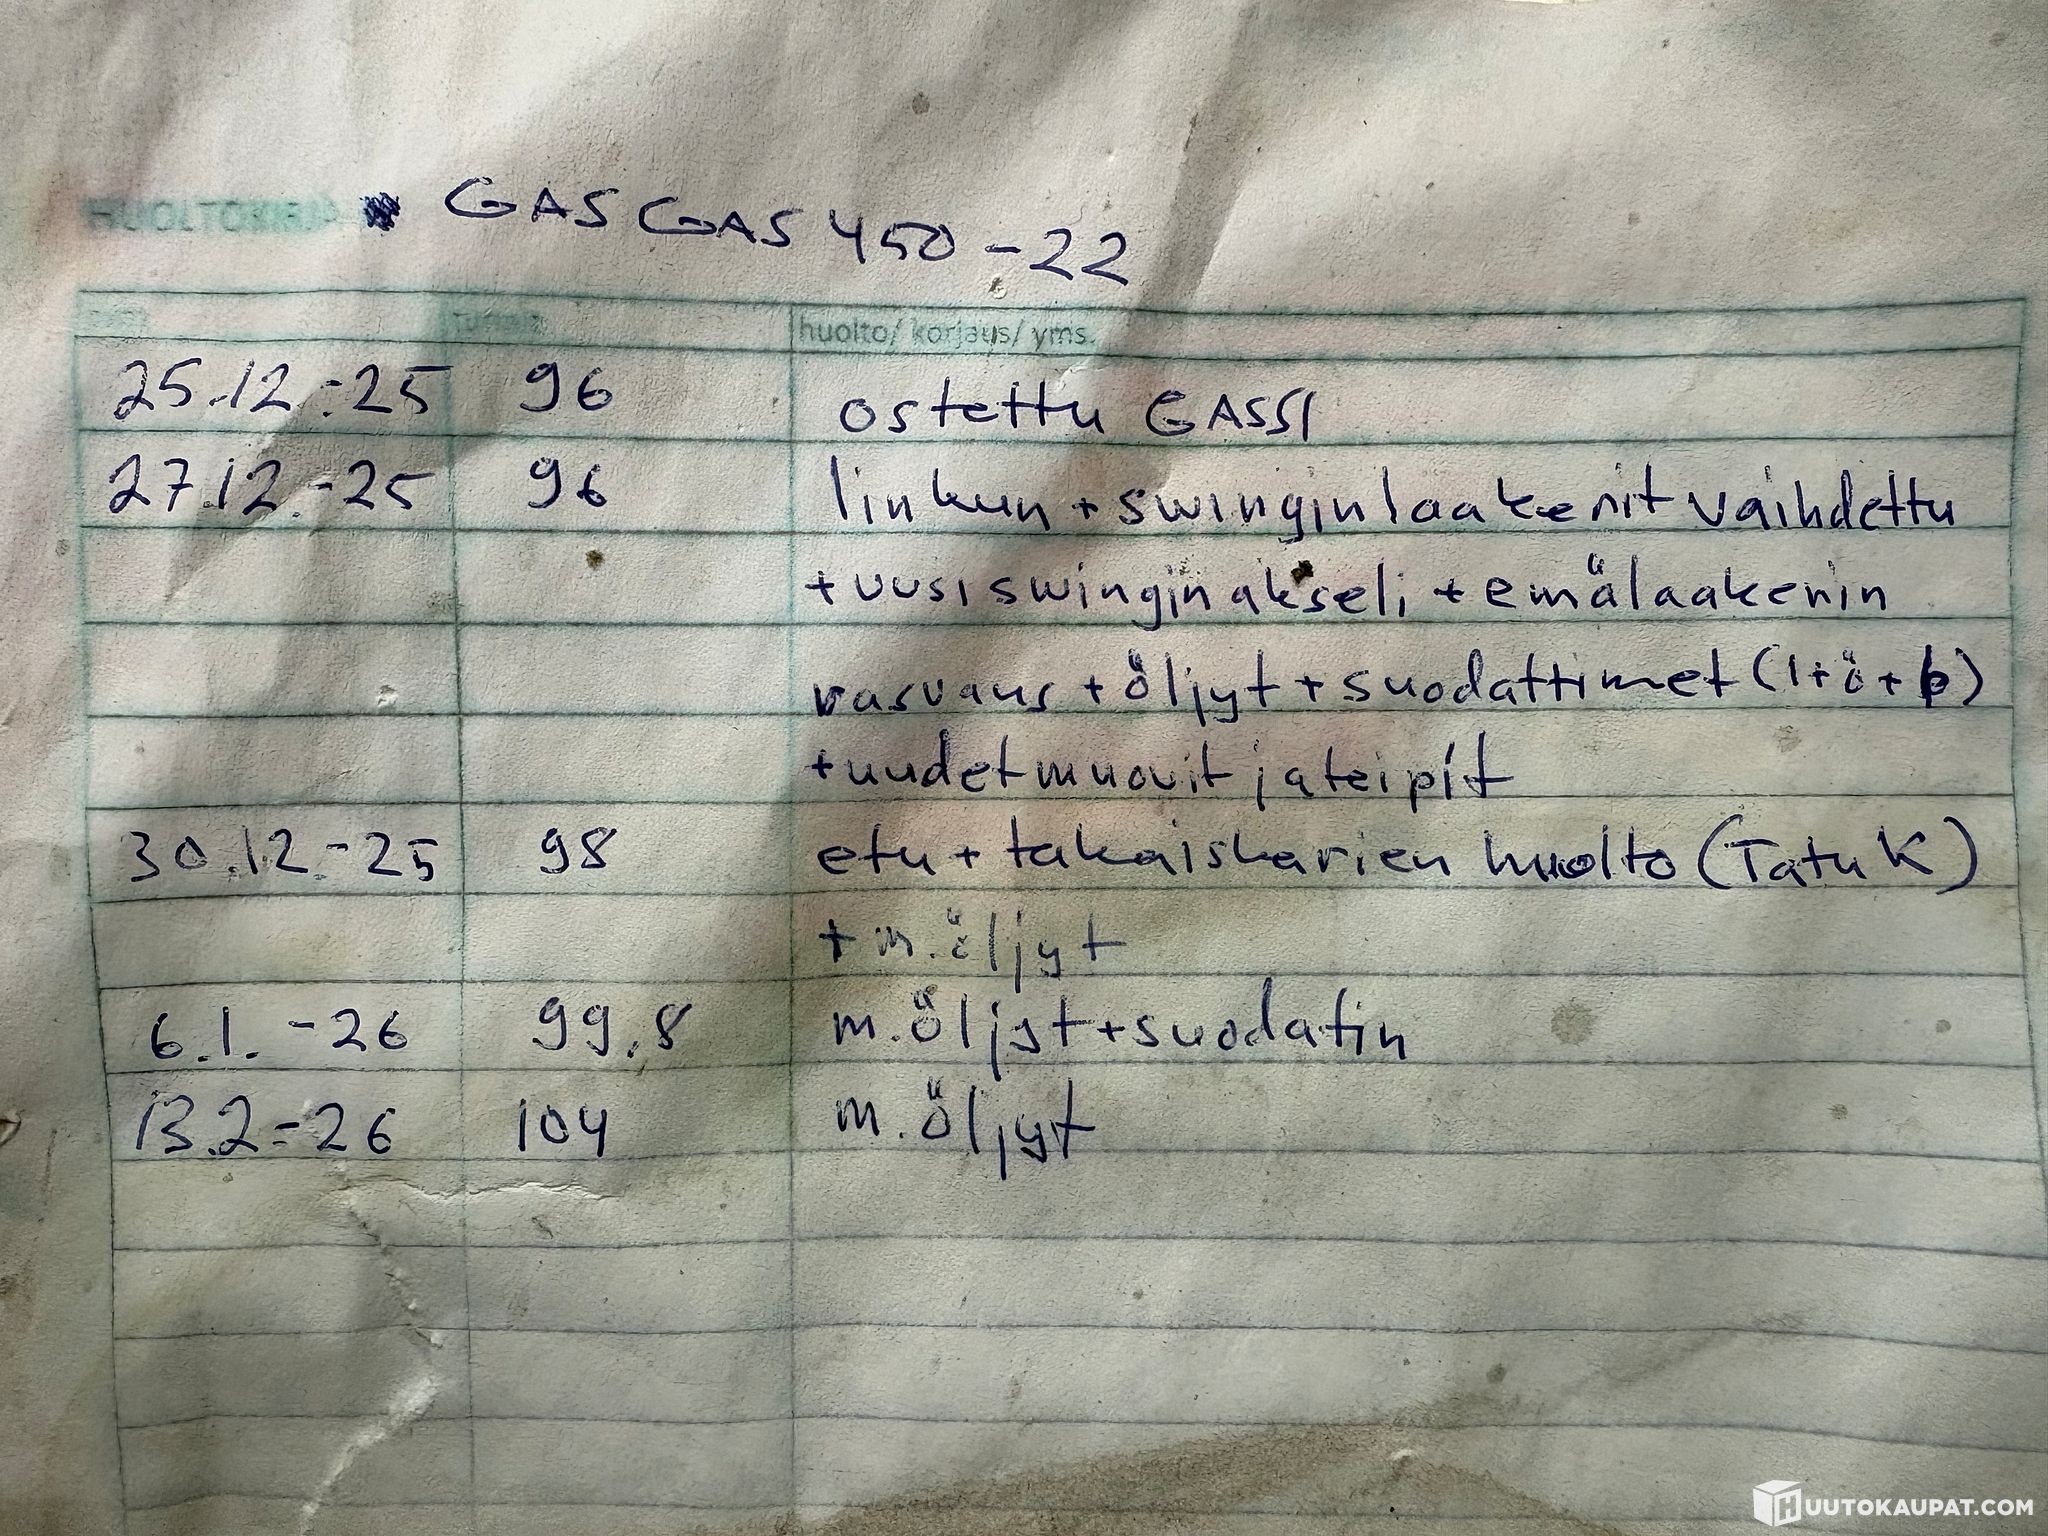 GASGAS 450 -22
huolto/ korjaus/ yms.
25.12.-25 96 ostettu GASSI
27.12.-25 96 linkun + swingin laakerit vaihdettu
+ uusi swingin akseli + emälaakerin
rasvaus + öljyt + suodattimet (1+ö+b)
+ uudet muovit ja teipit
30.12.-25 98 etu + takaiskarien huolto (Tatu K)
+ m.öljyt
6.1.-26 99.8 m.öljyt + suodatin
13.2-26 104 m.öljyt
HUUTOKAUPAT.COM